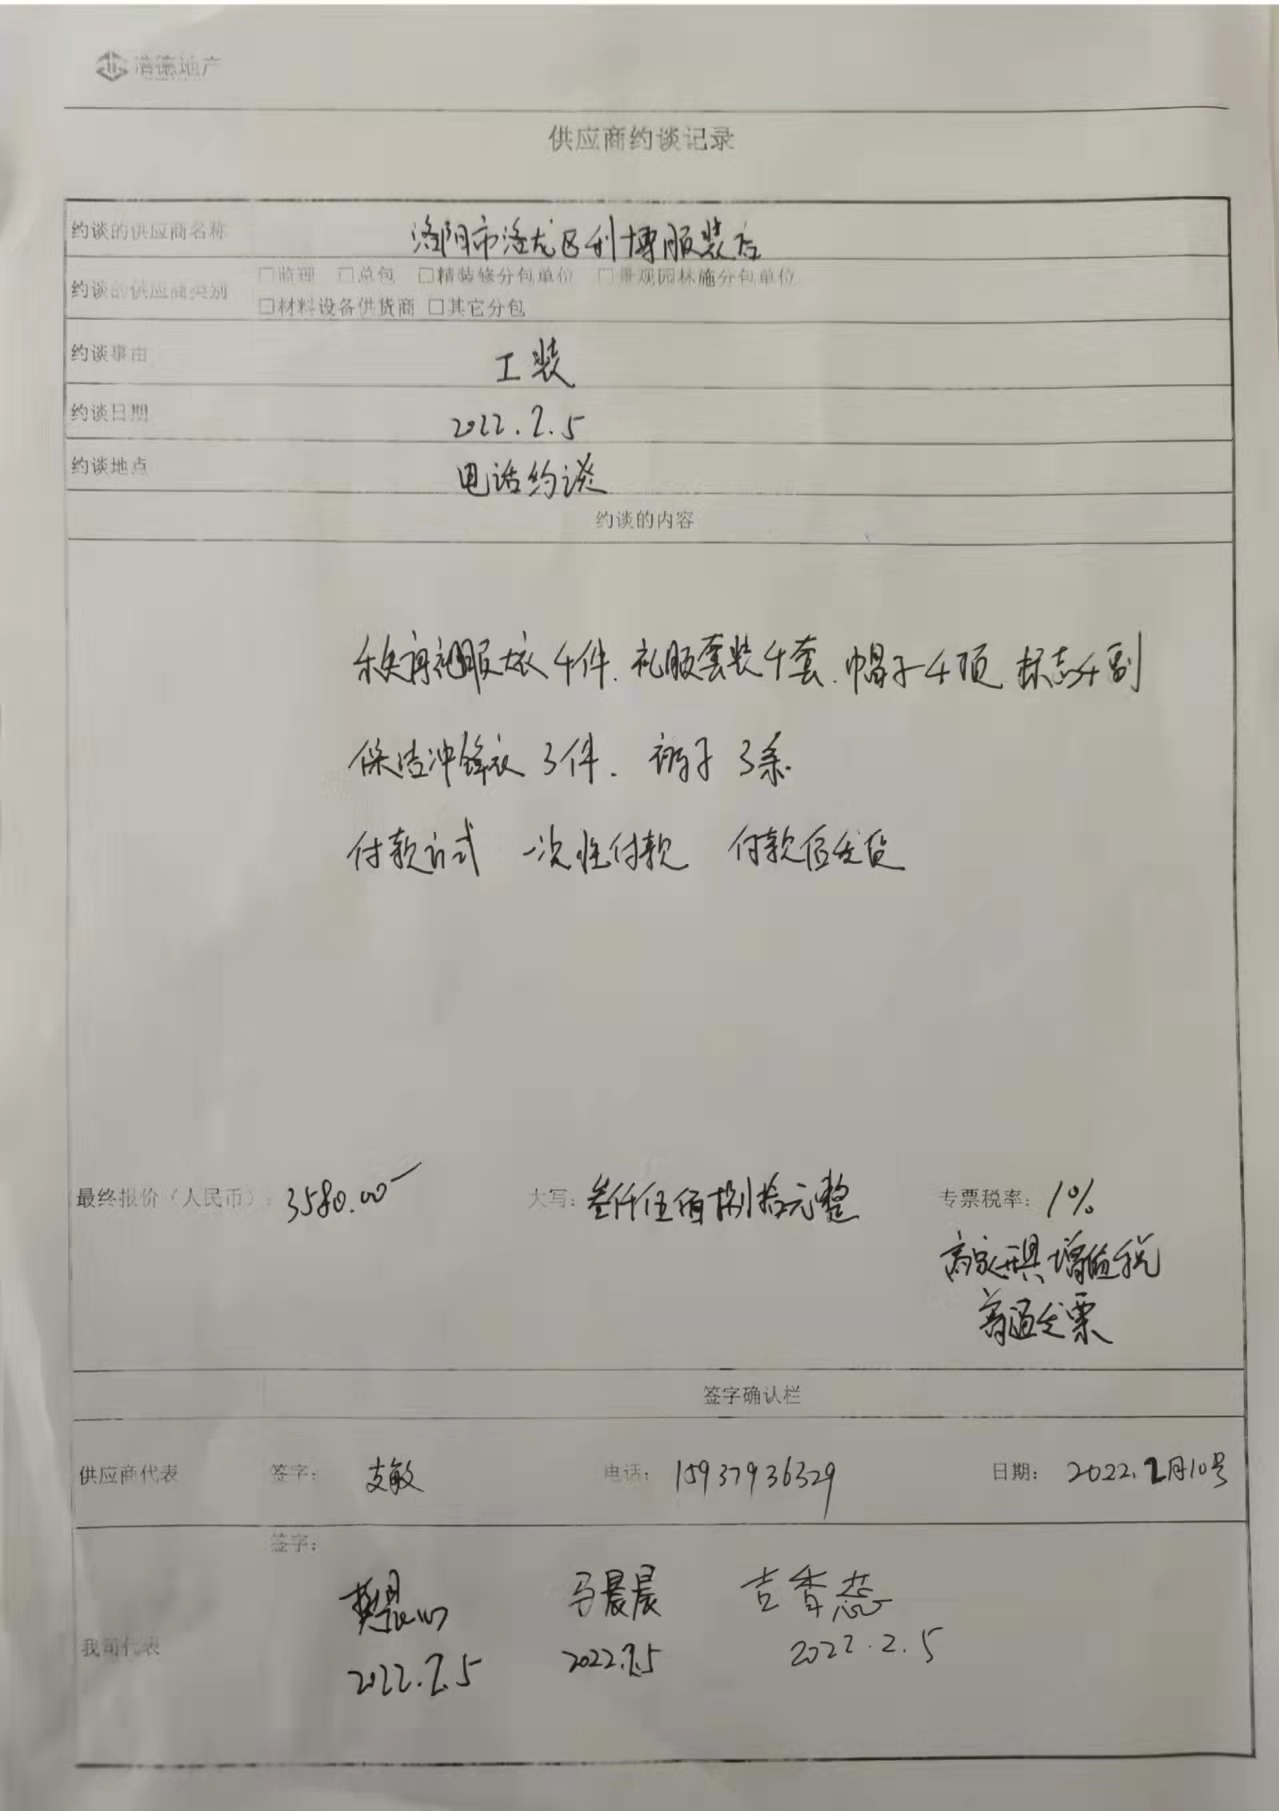 浩德地产
供应商约谈记录
约谈的供应商名称 洛阳市洛龙区利博服装店
约谈的供应商类别 □监理 □总包 □精装修分包单位 □景观园林施分包单位
□材料设备供货商 □其它分包
约谈事由 工装
约谈日期 2022.2.5
约谈地点 电话约谈
约谈的内容
礼服大衣4件.礼服套装4套.帽子4顶 标志4副
保洁冲锋衣 3件. 裤子 3条.
付款方式 一次性付款 付款后发货
最终报价（人民币）: 3580.00 大写: 叁仟伍佰捌拾元整 专票税率: 1%
商家开具增值税
普通发票
签字确认栏
供应商代表 签字: 支敏 电话: 15937936329 日期: 2022.2月10号
签字:
马晨晨 吉香蕊
我司代表
2022.2.5 2022.2.5 2022.2.5